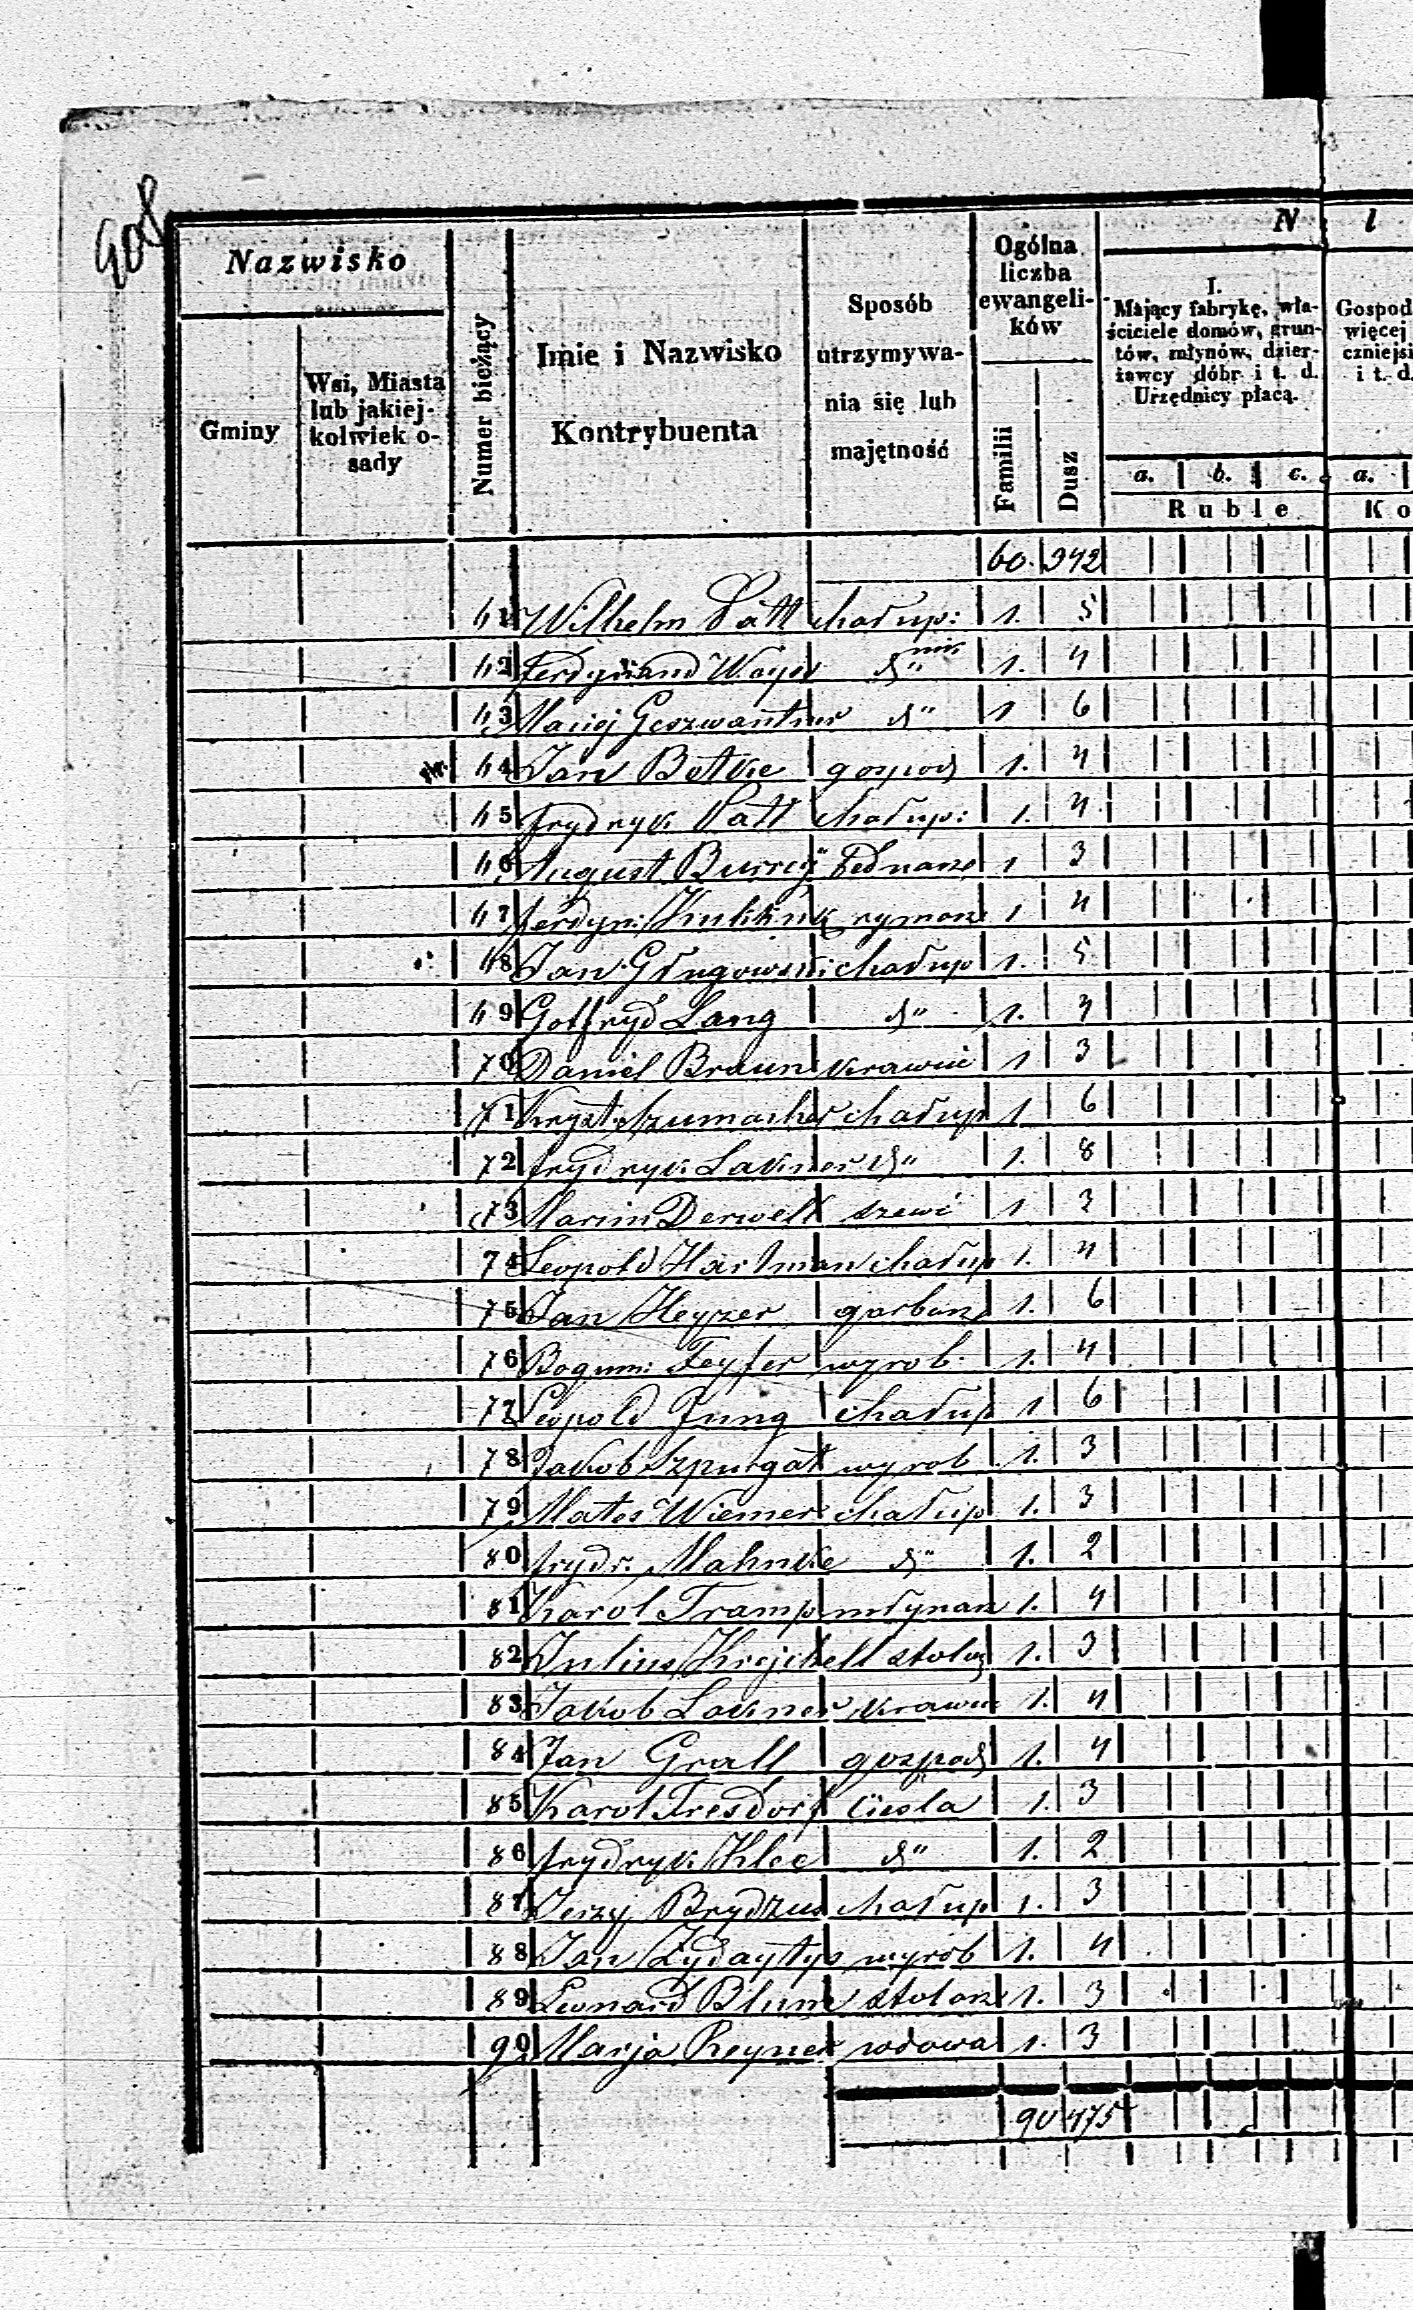 908
Nazwisko
Gminy
Wsi, Miasta
lub jakiej-
kolwiek o-
sady
Numer bieżący
Imie i Nazwisko
Kontrybuenta
Sposób
utrzymywa-
nia się lub
majętność
Ogólna
liczba
ewangeli-
ków
Familii
Dusz
N l
I.
Mający fabrykę, wła-
ściciele domów, grun-
tów, młynów, dzier-
żawcy dóbr i t. d.
Urzędnicy płacą.
a. b. c.
Ruble
Gospod
więcej
czniejsi
i t. d.
a.
Ko
60. 342
61 Wilhelm Patt chałup: 1. 5
62 Ferdynand d" 1. 4
63 Maciej Geszwantner d" 1 6
64 Jan Betke gospod 1. 4
65 Frydryk Patt chałup: 1. 4
66 August Bednarz 1 3
67 Ferdyn: rymarz 1 4
68 Jan chałup 1. 5
69 Gotfryd Lang d" 1. 4
70 Daniel Braun krawiec 1 3
71 Kryszt: Szumacher chałup 1 6
72 Frydryk Lakner d" 1. 8
73 Marcin Derwelt szewc 1 3
74 Leopold Hartman chałup 1. 4
75 Jan Heyzer garbarz 1. 6
76 Bogum: Feyfer wyrob. 1. 4
77 Leopold Jung chałup 1 6
78 Jakob Szpurgat wyrob 1. 3
79 Mates Wiemer chałup 1. 3
80 Frydr. Mahnke d" 1. 2
81 Karol Tramp młynarz 1. 4
82 Julius stolarz 1. 3
83 Jakob Lakner krawiec 1. 4
84 Jan Grall gospod 1. 4
85 Karol Fresdorf Cieśla 1. 3
86 Frydryk Klee d" 1. 2
87 Jerzy Brydzus chałup 1. 3
88 Jan Żydaytys wyrob 1. 4
89 Leonard Blum stolarz 1. 3
90 Marja Reyner wdowa 1. 3
90 475